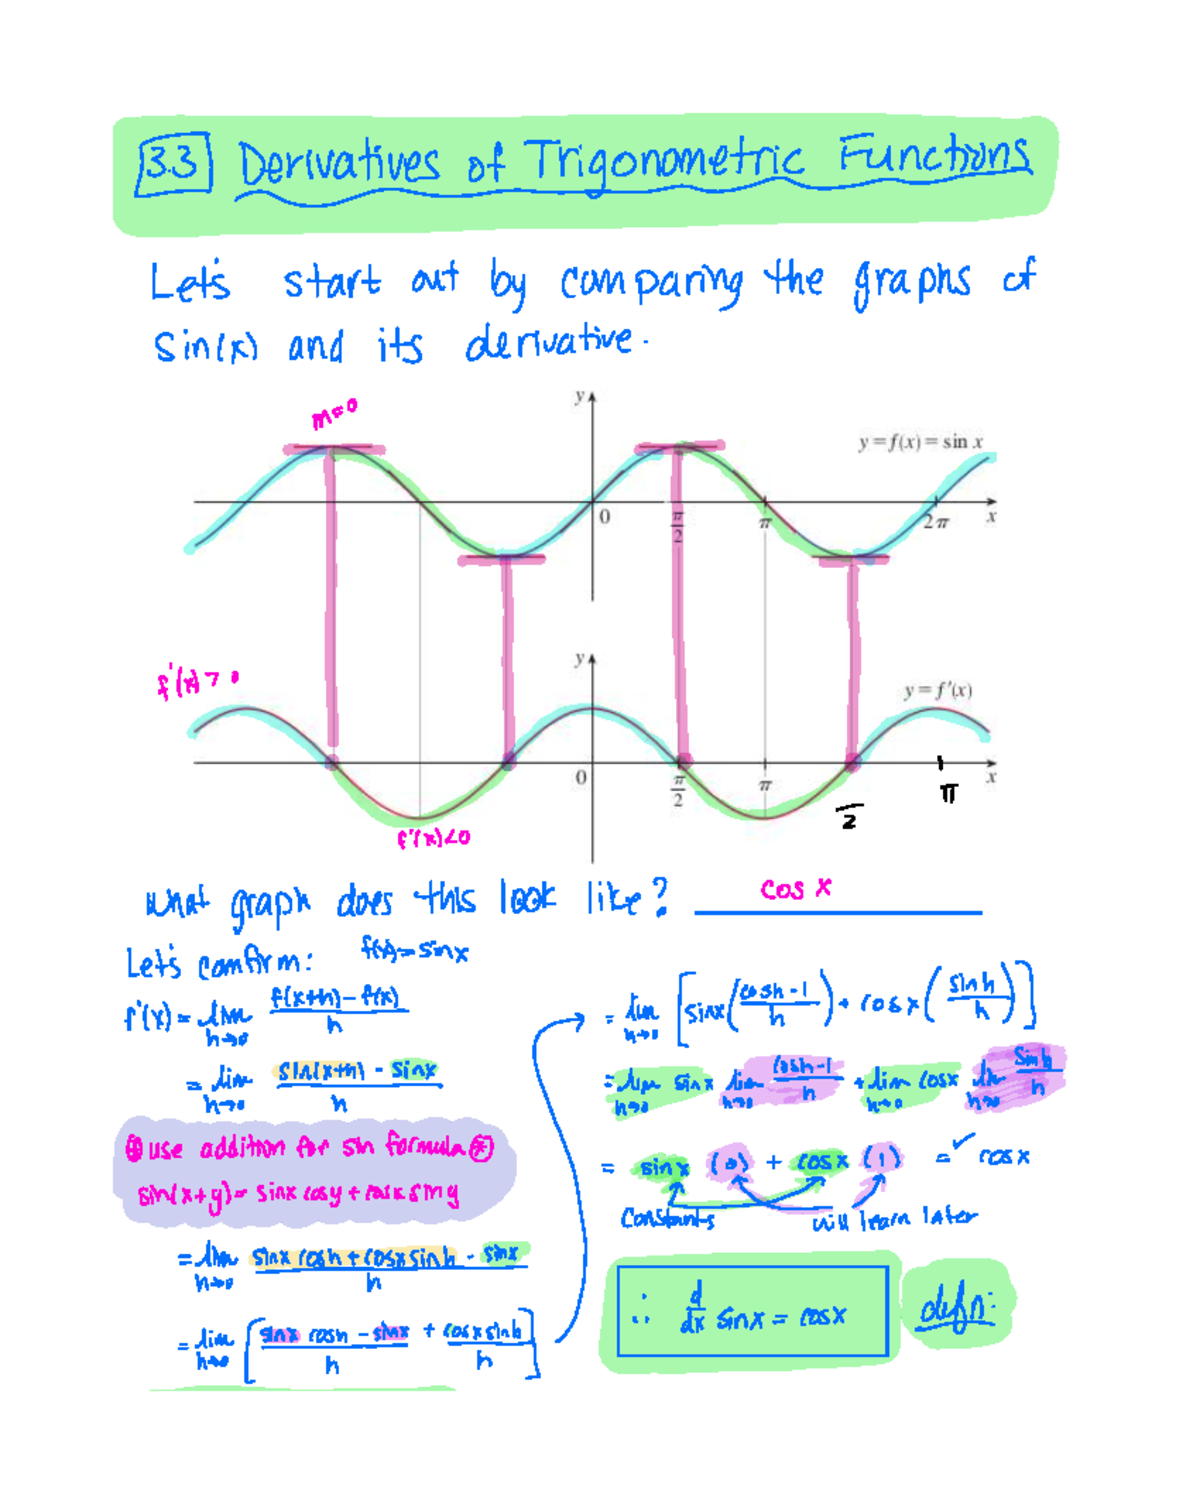 3.3 Derivatives of Trigonometric Functions
Let's start out by comparing the graphs of
sin(x) and its derivative.
m=0
y
y=f(x)=sin x
0
π/2
π
2π
x
f'(x)>0
y
y=f'(x)
0
π/2
π
2
π
x
f'(x)<0
What graph does this look like? cos x
Let's confirm: f(x)=sinx
f'(x) = lim h→0 f(x+h)-f(x)/h
= lim h→0 sin(x+h) - sinx/h
* use addition for sin formula *
sin(x+y)= sinx cosy + cosx siny
= lim h→0 sinx cosh + cosx sinh - sinx/h
= lim h→0 [sinx cosh - sinx/h + cosx sinh/h]
= lim h→0 [sinx(cosh-1/h) + cosx(sinh/h)]
= lim h→0 sinx lim h→0 cosh-1/h + lim h→0 cosx lim h→0 sinh/h
= sinx (0) + cosx (1) = ✓ cosx
Constants will learn later
∴ d/dx sinx = cosx defn: